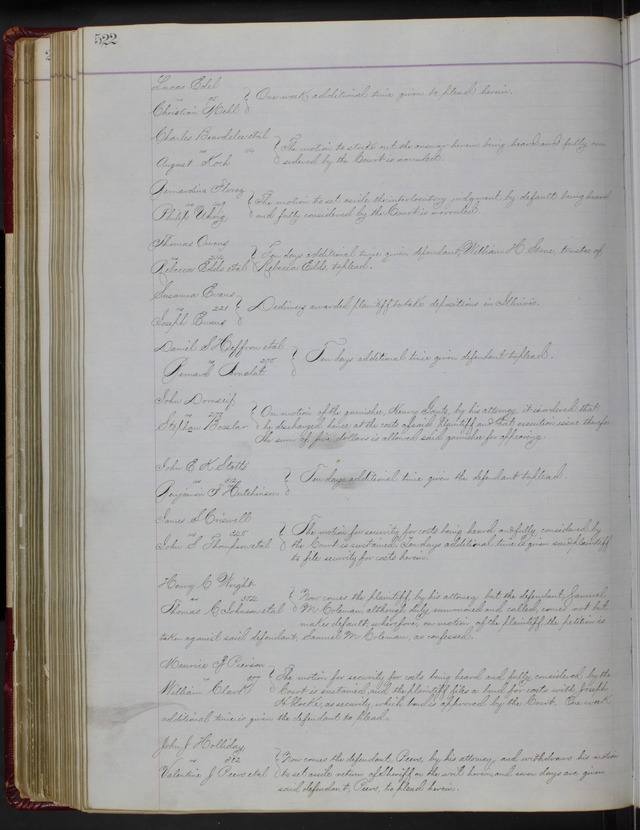 522
Lucas Edel
vs
Christian Kehl } One week additional time given to plead herein.
Charles Beardslee etal
vs
August Koch } The motion to strike out the answer herein being heard and fully con
sidered by the Court is overruled.
Bernardina Florez
vs
Philip Uhrig } The motion to set aside the interlocutory judgment by default being heard
and fully considered by the Court is overruled.
Thomas Owens
vs
Rebecca Edds etal } Ten days additional time given defendant, William H. Gene, trustee of
Rebecca Edds, to plead.
Susanna Evans
vs 221
Joseph Evans } Dedimus awarded plaintiff to take depositions in Illinois.
Daniel S Heffron etal
vs 275
Bernard } Ten days additional time given defendant to plead.
John Dornseif
vs 273
Stephan Besslar } On motion of the garnishee, Henry, by his attorney it is ordered that
he be discharged hence at the costs of said Plaintiff and that execution issue therefor
The sum of five dollars is allowed said garnishee for appearing.
John E K Stotts
vs 312
Benjamin F Hutchinson } Ten days additional time given the defendant to plead.
James S Criswell
vs 325
John S Thompson etal } The motion for security for costs being heard and fully considered by
the Court is sustained. Ten days additional time is given said plaintiff
to file security for costs herein.
Henry C Wright
vs 372
Thomas C Johnson etal } Now comes the plaintiff by his attorney but the defendant Samuel
M Coleman although duly summoned and called, comes not but
makes default; wherefore, on motion of the plaintiff the petition is
taken against said defendant, Samuel M Coleman, as confessed.
Maurice Pierson
vs 477
William Clark } The motion for security for costs being heard and fully considered by the
Court is sustained, and the plaintiff files a bond for costs with Joseph
Locke, as security, which bond is approved by the Court. One week
additional time is given the defendant to plead.
John J Holliday
vs 512
Valentine J Peers etal } Now comes the defendant Peers, by his attorney, and withdraws his motion
to set aside return of Sheriff on the writ herein, and seven days are given
said defendant, Peers, to plead herein.